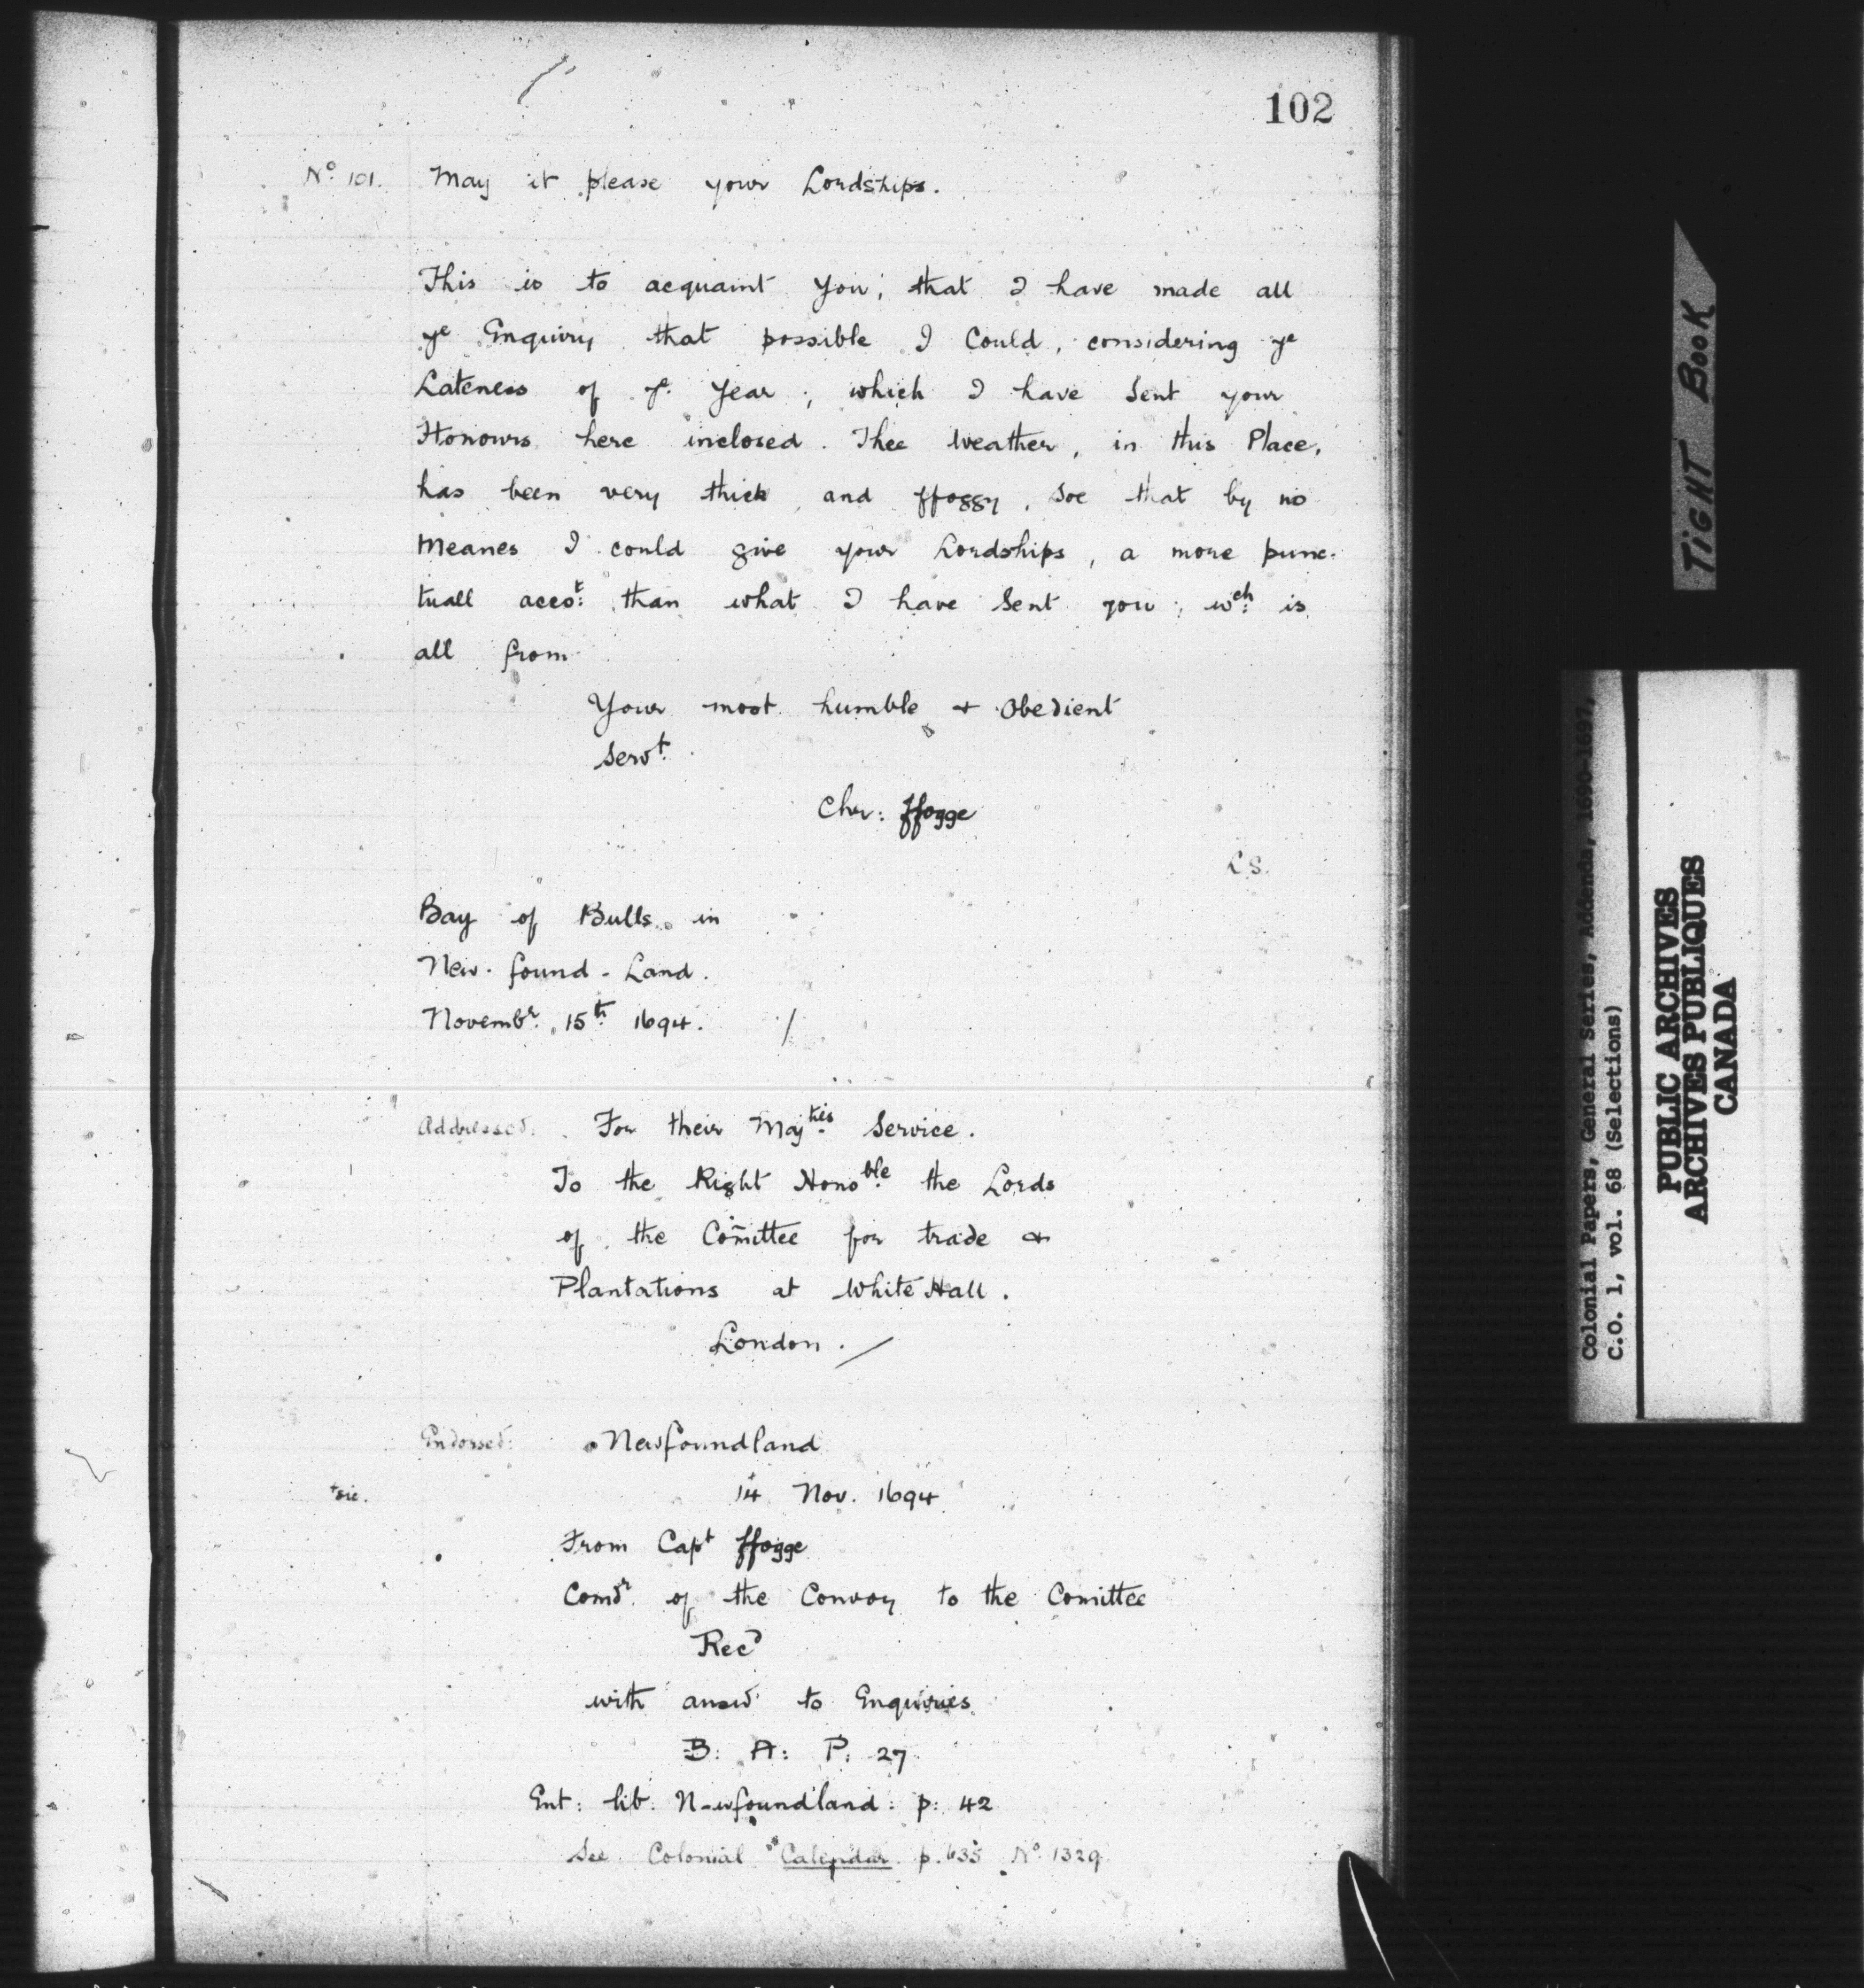 102
Nº 101. May it please your Lordships.
This is to acquaint You; that I have made all
yᵉ Enquiry that possible I Could, considering yᵉ
Lateness of yᵉ Year; which I have Sent your
Honours here inclosed. Thee Weather, in this Place,
has been very thick and ffoggy, Soe that by no
Meanes I could give your Lordships, a more punc-
tuall acco:ᵗ than what I have Sent you; w:ᶜʰ is
all from
Your most humble & Obedient
Servᵗ.
Chr: ffogge
L S.
Bay of Bulls in
New-found-Land.
Novembʳ. 15ᵗʰ 1694. /
Addressed. For their Maj:ᵗⁱᵉˢ Service.
To the Right Hono:ᵇˡᵉ the Lords
of the Com̃ittee for trade &
Plantations at White Hall.
London. /
Endorsed: Newfoundland
+sic. 14+ Nov. 1694
From Capᵗ ffogge
Comdʳ. of the Convoy to the Comittee
Recᵈ
with answʳ to Enquiries
B: A: P: 27.
Ent: lib: Newfoundland: p: 42
See Colonial Calendar p. 635 Nº 1329.
TIGHT BOOK
Colonial Papers, General Series, Addenda, 1690-1697,
C.O. 1, vol. 68 (Selections)
PUBLIC ARCHIVES
ARCHIVES PUBLIQUES
CANADA